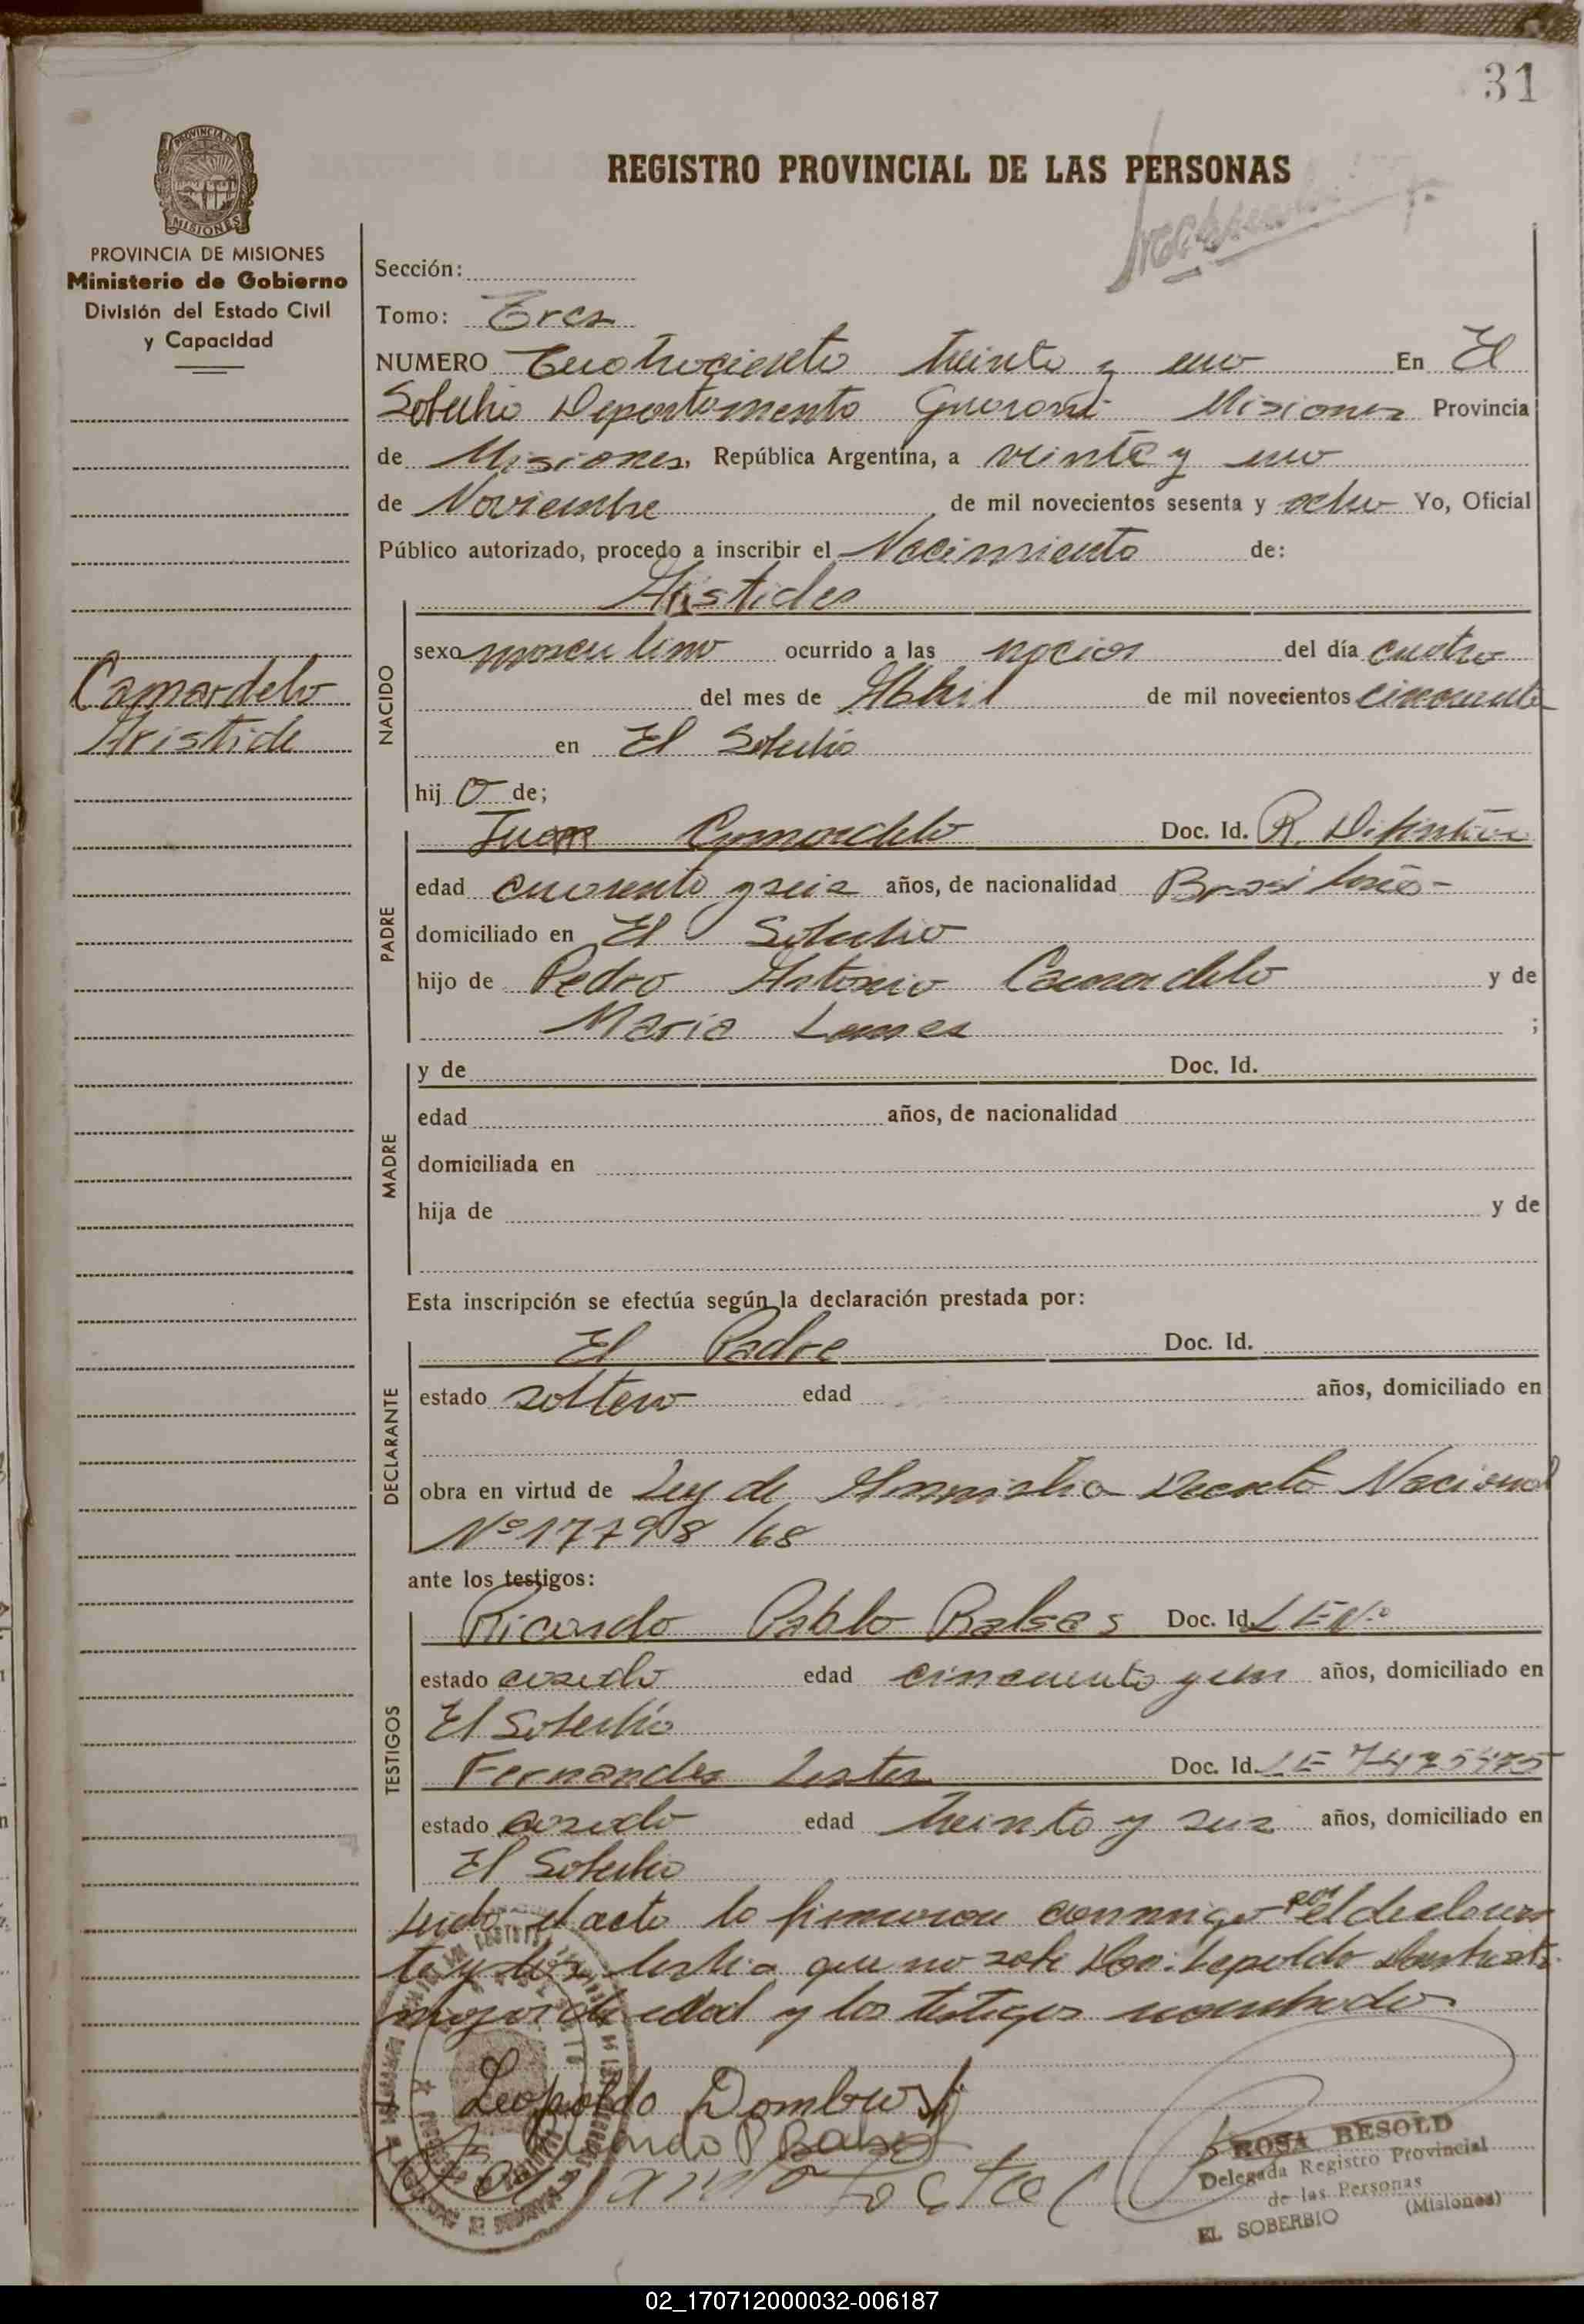 31
PROVINCIA DE
MISIONES
REGISTRO PROVINCIAL DE LAS PERSONAS
PROVINCIA DE MISIONES
Ministerio de Gobierno
División del Estado Civil
y Capacidad
Camardelo
Aristide
Sección:
Tomo: Tres
NUMERO Cuatrociento treinta y uno En El
Soberbio Departamento Guarani Misiones Provincia
de Misiones, República Argentina, a veinte y uno
de Noviembre de mil novecientos sesenta y ocho Yo, Oficial
Público autorizado, procedo a inscribir el Nacimiento de:
Aristides
NACIDO
sexo masculino ocurrido a las del día cuatro
del mes de Abril de mil novecientos cincuenta
en El Soberbio
hij o de;
PADRE
Juan Camardelo Doc. Id. R.
edad cuarenta y seis años, de nacionalidad Brasileño
domiciliado en El Soberbio
hijo de Pedro Antonio Camardelo y de
Maria Lemes ;
MADRE
y de Doc. Id.
edad años, de nacionalidad
domiciliada en
hija de y de
Esta inscripción se efectúa según la declaración prestada por:
DECLARANTE
El Padre Doc. Id.
estado soltero edad años, domiciliado en
obra en virtud de Ley de Amnistia Decreto Nacional
Nº 17798/68
ante los testigos:
TESTIGOS
Ricardo Pablo Balses Doc. Id. L E Nº
estado casado edad cincuenta y un años, domiciliado en
El Soberbio
Fernandes Doc. Id. LE 7475475
estado casado edad treinta y seis años, domiciliado en
El Soberbio
Leida el acta la firmaron conmigo por el declaran
te y que no sabe Don: Lepoldo
mayor de edad y los testigos nombrados
Leopoldo Dombrosk
Ricardo P Balses
ROSA BESOLD
Delegada Registro Provincial
de las Personas
EL SOBERBIO (Misiones)
02_170712000032-006187